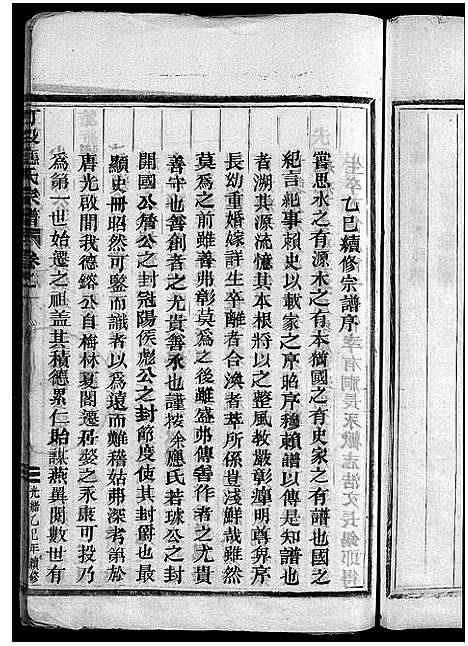 乙巳續修宗譜序
嘗思水之有源木之有本猶國之有史家之有譜也國之
紀言紀事賴史以載家之序昭序穆賴譜以傳是知譜也
者溯其源流憶其本根將以之整風教嚴彰癉明尊畀序
長幼重婚嫁詳生卒離者合渙者萃所係豈淺鮮哉雖然
莫爲之前雖善弗彰莫爲之後雖盛弗傳善作者之尤貴
善守也善創者之尤貴善承也謹按余應氏若球公之封
開國公簵公之封冠陽侯彪公之封節度使其封爵也最
顯史冊昭然可鑒而識者以爲遠而難稽姑弗深考第於
唐光啟間我德鎔公自梅林夏閣遷居婺之永康可投乃
爲第一世始遷之祖盖其積德累仁貽謀燕翼閱數世有
應氏宗譜 卷之一
光緒乙巳年續修